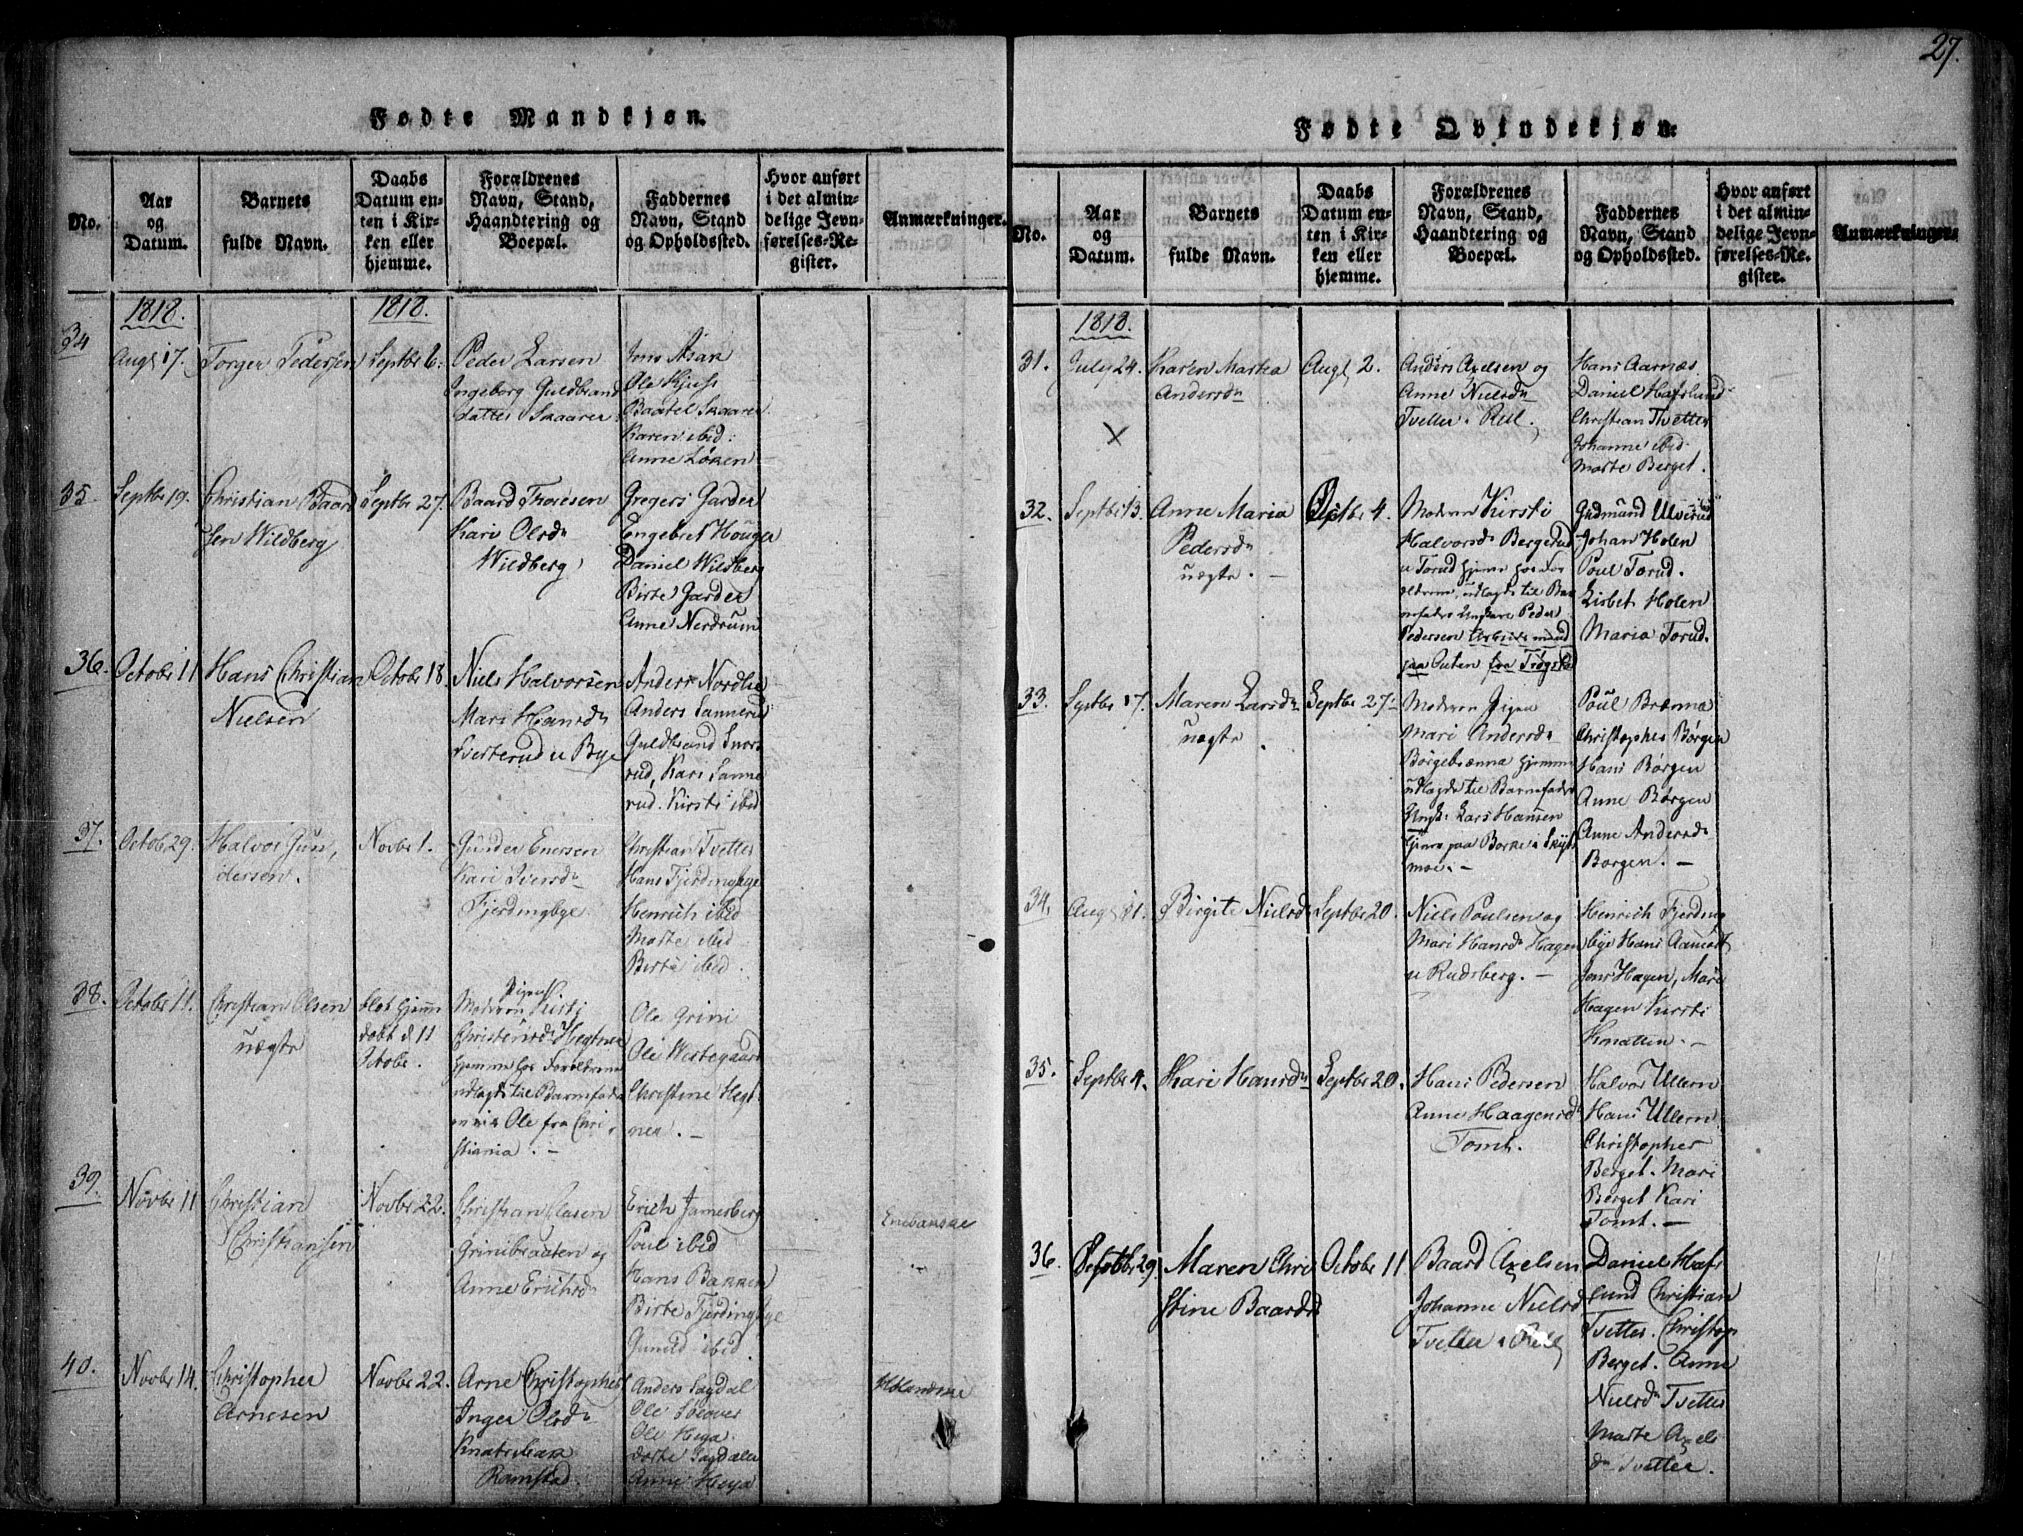 27.
Fødte Mandkjøn.
No.
Aar
og
Datum.
Barnets
fulde Navn.
Daabs
Datum en-
ten i Kir-
ken eller
hjemme.
Forældrenes
Navn, Stand,
Haandtering og
Boepæl.
Faddernes
Navn, Stand
og Opholdssted.
Hvor anført
i det almin-
delige Jevn-
førelses-Re-
gister.
Anmærkninger.
1818.
1818.
34
Aug 17.
Torger Pedersen
Septbr 6.
Peder Larsen
Ingeborg Guldbrand
datter Skaarer
Jens Asak
Ole Kjus
Baatel Skaarer
Karen ibid:
Anne Løken
35
Septbr 19.
Christian Baard
sen Wildberg
Septbr 27.
Baard Thoresen
Kari Olsdr
Wildberg
Gregers Garder
Engebret Houger
Daniel Wildberg
Birte Garder
Anne Nerdrum
36.
Octobr 11
Hans Christian
Nielsen
Octobr 18.
Niels Halvorsen
Mari Hansdr
Sverterud u Bye
Anders Nordlie
Anders Sannerud
Guldbrand Snors
rud, Kari Sanne
rud. Kirsti ibid
37.
Octob 29.
Halvor Gun,
dersen.
Novbr 1.
Gunder Enersen
Kari Iversdr
Fjerdingbye
Christian Tvetter
Hans Fjerdingbye
Henrich ibid
Marte ibid
Birte ibid.
38.
Octobr 11.
Christian Olsen
uægte
blot hjemme
døbt d 11
Octobr.
Pigen
Moderen Kirsti
Christensdr Hegtnea
hjemme hos Forældrene
udlagde til Barnefader
Ole fra Chri
stiania. -
Ole Grini
Ole Westegaard
Christine Hegt
nea. -
39.
Novbr 11
Christian
Christiansen
Novbr 22.
Christian Clasen
Grinibraaten og
Anne Erichsdr
Erich Jamerberg
Poul ibid
Hans Bakken
Birte Fjerdingbye
Gunild ibid
Enebakske
40.
Novbr 14.
Christopher
Arnesen
Novbr 22.
Arne Christopher
Inger Olsdr
Ramstad.
Anders Sagdal
Ole
Ole Heya
Dorte Sagdalen
Anne Heya
Hølandske
Fødte Qvindekjøn.
No.
Aar
og
Datum.
Barnets
fulde Navn.
Daabs
Datum en-
ten i Kir-
ken eller
hjemme.
Forældrenes
Navn, Stand,
Haandtering og
Boepæl.
Faddernes
Navn, Stand
og Opholdssted.
Hvor anført
i det almin-
delige Jevn-
førelses-Re-
gister.
Anmærkninger.
1818.
31.
July 24.
Karen Martea
Andersdr
Aug 2.
Anders Axelsen og
Anne Nielsdr
Tvetter i Rell.
Hans Aarnæs
Daniel Hafslund
Christian Tvetter
Johanne ibid
Marte Berget.
X
32.
Septbr 13.
Anne Maria
Pedersdr
uægte. -
Octbr 4.
Moderen Kirsti
Halvorsdr Bergerud
u Torud hjemme hos For
ældrene, udlagde til Bar
nefader Ungkarl Peder
Pedersen Arbeidsmand
paa Outen fra Trøgstad
Gudmund Ulverud
Johan Holen
Poul Torud.
Lisbet Holen
Maria Torud.
33.
Septbr 17.
Maren Larsdr
uægte.
Septbr 27
Moderen Pigen
Mari Andersdr
Børgebrænna hjemme
udlagde til Barnefader
Ungk: Lars Hansen
tjener paa Borke i Skijt
moe. -
Poul Brænna
Christopher Børgen
Hans Børgen
Anne Børgen
Anne Andersdr
Borgen. -
34.
Aug 31.
Birgite Nielsdr
Septbr 20.
Niels Poulsen og
Mari Hansdr Hagen
u Rudsberg. -
Henrich Fjerding
bye Hans Aamodt
Jens Hagen, Mari
Hagen Kirsti
Knatten. -
35.
Septbr 4.
Kari Hansdr
Septbr 20.
Hans Pedersen
Anne Haagensdr
Tomt.
Halvor Ullern
Hans Ullern
Christopher
Berget. Mari
Berget Kari
Tomt. -
36.
Septbr 29.
Maren Chri
stine Baardsdr
Octobr 11.
Baard Axelsen
Johanne Nielsd
Tvetter i Rell
Daniel Haf
lund Christian
Tvetter. Christop
Berget. Anne
Nielsdr Tvetter
Marte Axels
dr Tvetter.